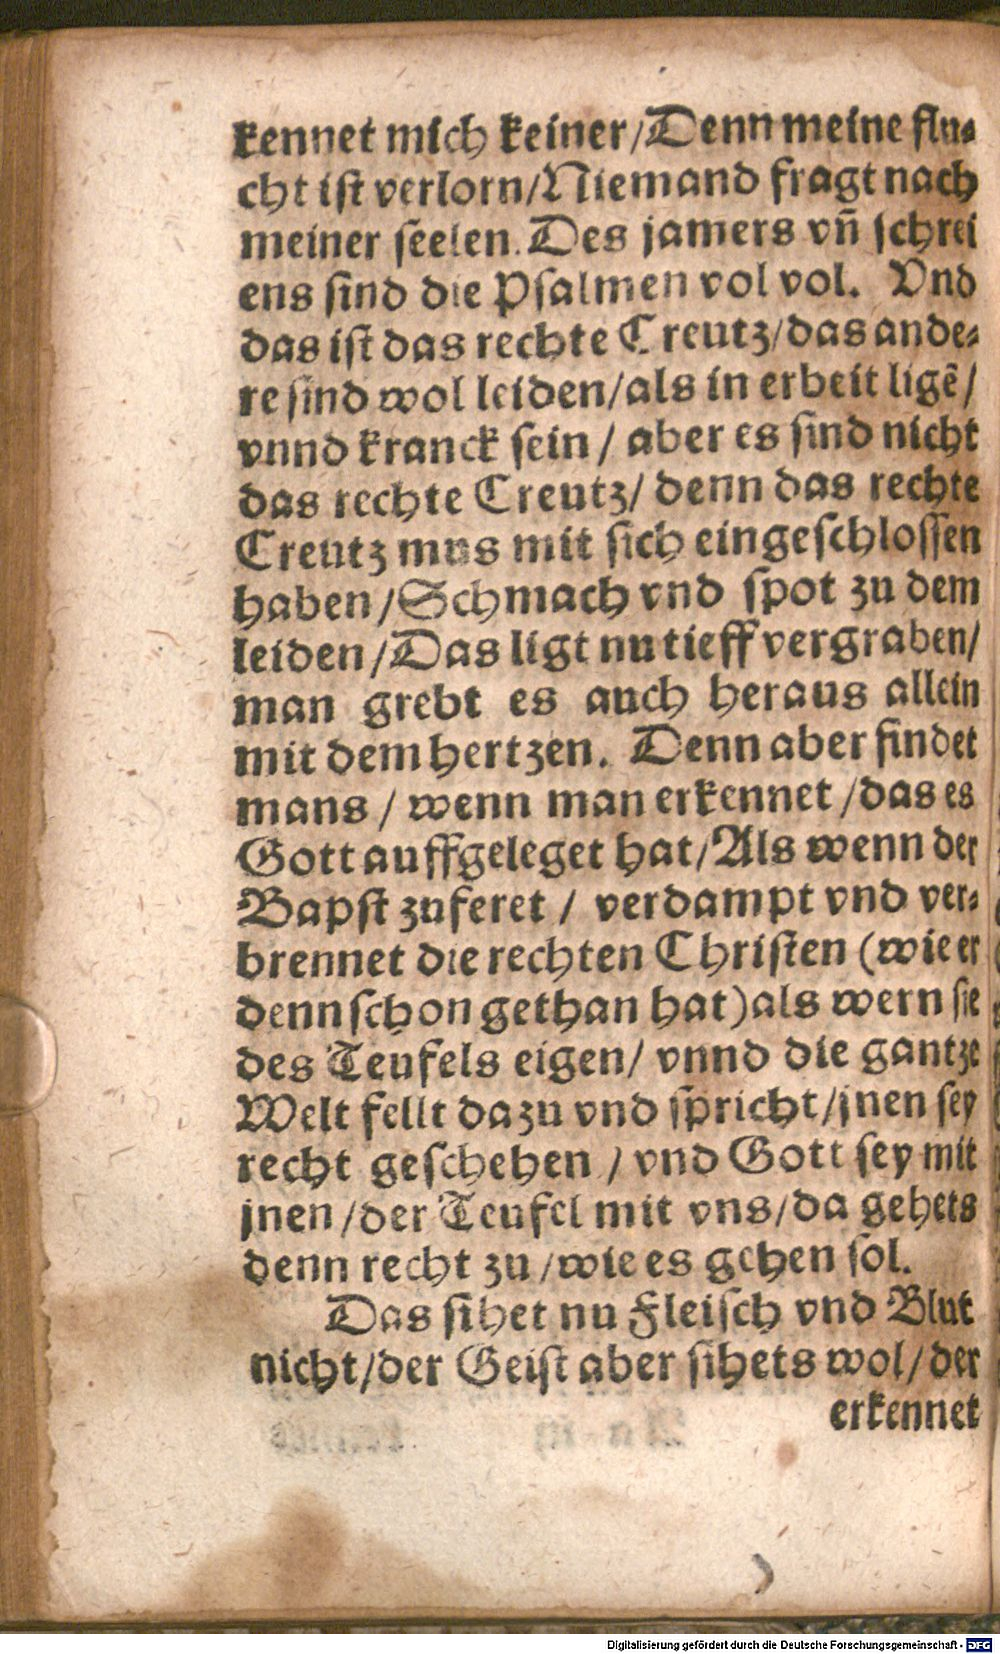 kennet mich keiner/Denn meine flu⸗
cht ist verlorn/Niemand fragt nach
meiner seelen. Des jamers vñ schrei
ens sind die Psalmen vol vol. Vnd
das ist das rechte Creutz/das ande⸗
re sind wol leiden/als in erbeit ligẽ/
vnnd kranck sein / aber es sind nicht
das rechte Creutz/ denn das rechte
Creutz mus mit sich eingeschlossen
haben/Schmach vnd spot zu dem
leiden/Das ligt nu tieff vergraben/
man grebt es auch heraus allein
mit dem hertzen. Denn aber findet
mans / wenn man erkennet /das es
Gott auffgeleget hat/Als wenn der
Bapst zuferet / verdampt vnd ver⸗
brennet die rechten Christen (wie er
denn schon gethan hat)als wern sie
des Teufels eigen/ vnnd die gantze
Welt fellt dazu vnd spricht/jnen sey
recht geschehen / vnd Gott sey mit
jnen/der Teufel mit vns/da gehets
denn recht zu/wie es gehen sol.
Das sihet nu Fleisch vnd Blut
nicht/der Geist aber sihets wol/der
erkennet
Digitalisierung gefördert durch die Deutsche Forschungsgemeinschaft - DFG